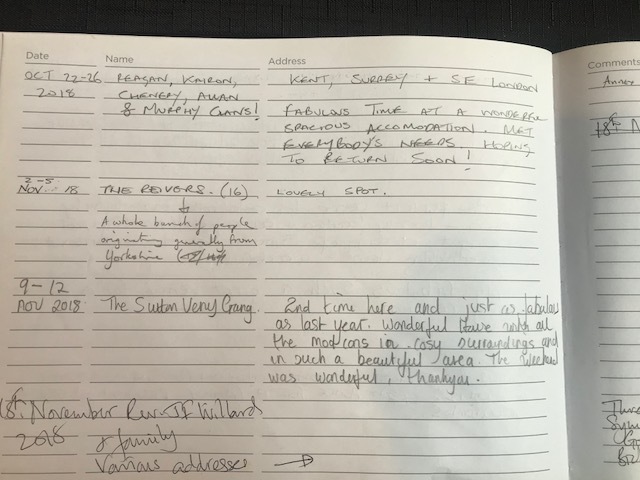 Date Name Address Comments
OCT 22-26 REAGAN, KAIRON, KENT, SURREY + SE LONDON
2018 CHENERY, ALLAN
& MURPHY CLANS! FABULOUS TIME AT A WONDERFUL
SPACIOUS ACCOMODATION. MET
EVERYBODY'S NEEDS. HOPING
TO RETURN SOON!
2-5
NOV. 18 THE REIVERS. (16) LOVELY SPOT.
A whole bunch of people
originating generally from
Yorkshire
9-12
NOV 2018 The Sutton Veny Gang. 2nd time here and just as fabulous
as last year. Wonderful house with all
the modcons in cosy surroundings and
in such a beautiful area. The weekend
was wonderful, thankyou.
18th November Rev. JF Willard
2018 & family
Various addresses →
Annex
18th N